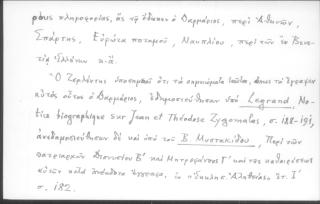 ρους πληροφορίας, ἃς τῷ ἔδωκεν ὁ Δαρμάριος, περὶ Ἀθηνῶν,
Σπάρτης, Εὐρώτα ποταμοῦ, Ναυπλίου, περὶ τῶν ἐν Βενε-
τίᾳ Ἑλλήνων κ.ἄ.
Ὁ Ζερλέντης ὑποσημειοῖ ὅτι τὰ σημειώματα ταῦτα, ὅπως τὰ ἔγραψεν
αὐτὸς οὗτος ὁ Δαρμάριος, ἐδημοσιεύθησαν ὑπὸ Legrand, No-
tice biographique sur Jean et Théodose Zygomalas, σ. 188-191,
ἀνεδημοσιεύθησαν δὲ καὶ ὑπὸ τοῦ Β. Μυστακίδου, Περὶ τῶν
πατριαρχῶν Διονυσίου Β΄ καὶ Μητροφάνους Γ΄ καὶ τῆς καθαιρέσεως
αὐτῶν κατὰ ἀνέκδοτα ἔγγραφα, ἐν "Ἐκκλησ. Ἀληθείᾳ" ἔτ. Ι΄
σ. 182.